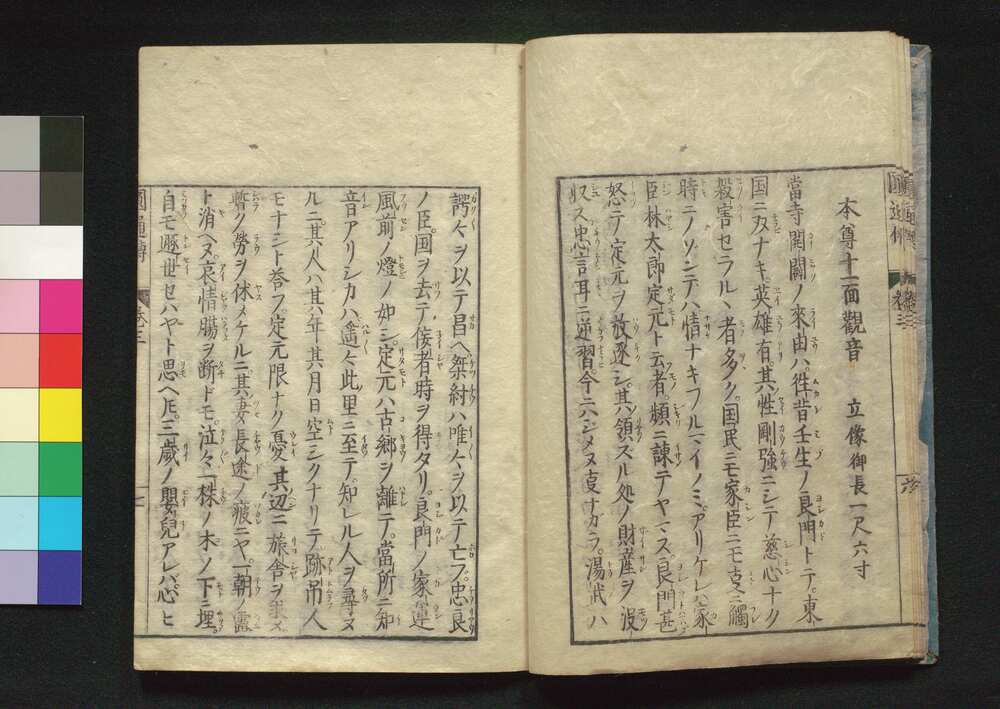 本尊十一面觀音 立像御長一尺六寸
當寺開闢ノ來由ハ徃昔壬生ノ良門トテ。東
国ニ双ナキ英雄有其性剛強ニシテ慈心ナク
殺害セラルヽ者多ク。国民ニモ家臣ニモ支ニ觸
時ニノソンテハ情ナキフルマイノミアリケレハ家
臣林太郎定元ト云者。頻ニ諫テヤマス。良門甚
怒テ定元ヲ放逐シ。其領スル処ノ財産ヲ没
収ス忠言耳ニ逆習。今ニハシメヌ支ナカラ。湯武ハ
諤々ヲ以テ昌ヘ桀紂ハ唯々ヲ以テ亡フ。忠良
ノ臣。国ヲ去テ佞者時ヲ得タリ。良門ノ家運
風前ノ燈ノ如シ。定元ハ古郷ヲ離テ。當所ニ知
音アリシカハ遙々此里ニ至テ。知レル人ヲ尋ヌ
ルニ。其人ハ其年其月日空シクナリテ。跡弔人
モナシト答フ。定元限ナク憂其辺ニ旅舎ヲ求メ
暫ノ勞ヲ休メケルニ。其妻長途ノ疲ニヤ。一朝ノ露
ト消ヘヌ。哀情腸ヲ断ドモ。泣々一株ノ木ノ下ニ埋
自モ遯世セハヤト思ヘ𪜈。三歳ノ嬰兒アレバ。心ヒ
圓通傳 巻三